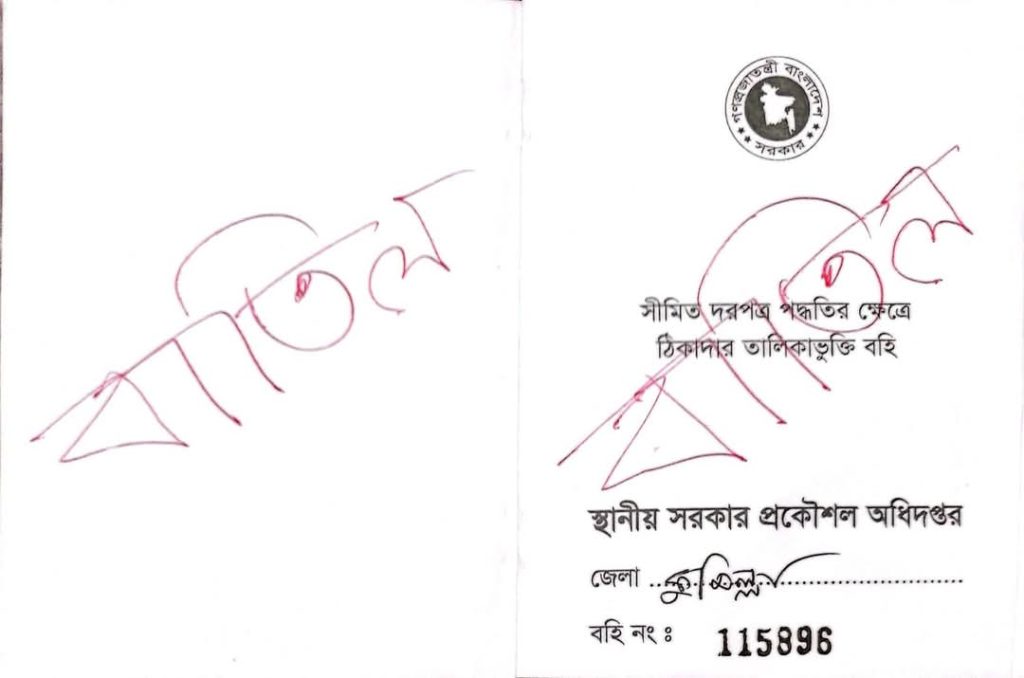 বাতিল
গণপ্রজাতন্ত্রী বাংলাদেশ
সরকার
বাতিল
সীমিত দরপত্র পদ্ধতির ক্ষেত্রে
ঠিকাদার তালিকাভুক্তি বহি
স্থানীয় সরকার প্রকৌশল অধিদপ্তর
জেলা ..কুমিল্লা..............................
বহি নং ঃ 115896